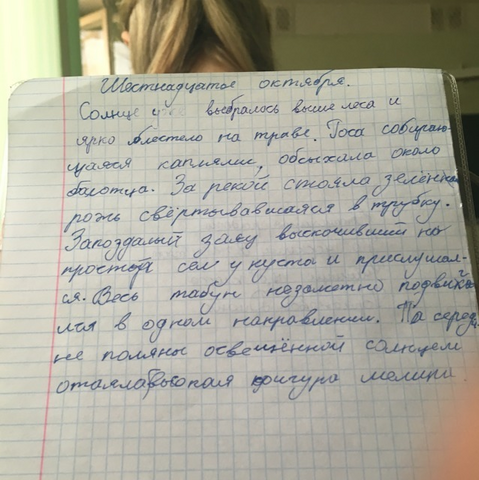 Шестнадцатое октября.
Солнце выбралось выше леса и
ярко блестело на траве. Роса собираю-
щаяся каплями, обсыхала около
болотца. За рекой стояла зелёная
рожь свёртывавшаяся в трубку.
Запоздалый заяц выскочивший на
простор сел у куста и прислушал-
ся. Весь табун незаметно подвигал
лся в одном направлении. На середи
не поляны освещённой солнцем
стояла высокая фигура мерина.